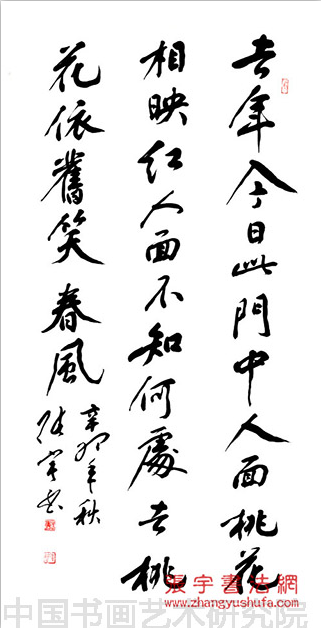 去年今日此門中人面桃花
相映红人面不知何處去桃
花依舊笑春風
辛卯年秋
張宇書
張宇書法網
www.zhangyushufa.com
中国书画艺术研究院